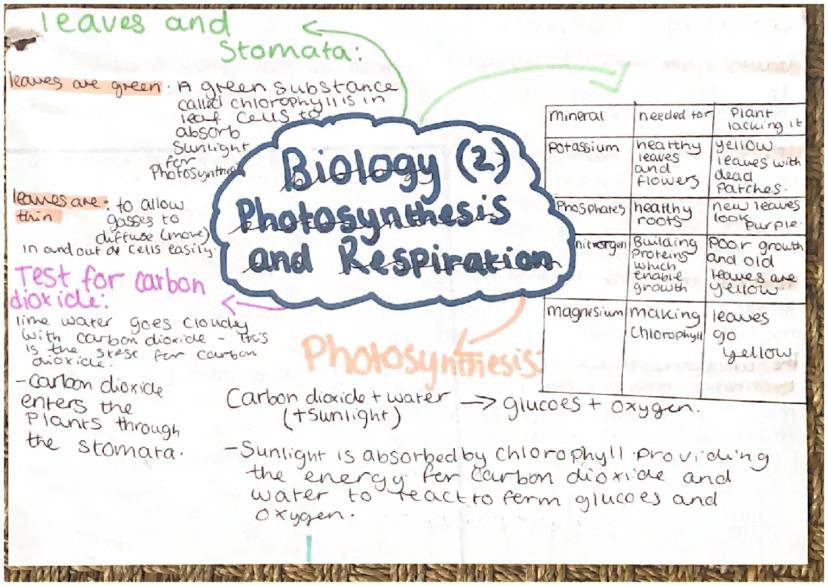 leaves and
Stomata:
leaves are green: A green substance
called chlorophyll is in
leaf cells to
absorb
Sunlight
for
Photosynthesis
leaves are: to allow
thin gasses to
diffuse (move)
in and out of cells easily.
Biology (2)
Photosynthesis
and Respiration
mineral needed for Plant
lacking it
Potassium healthy yellow
leaves leaves with
and dead
flowers Patches.
Phosphates healthy new leaves
roots look
Purple.
nitrogen Building Poor growth
Proteins and old
which leaves are
enable yellow
growth
magnesium making leaves
chlorophyll go
yellow
Test for carbon
dioxide:
lime water goes cloudy
with carbon dioxide - this
is the stest for carbon
dioxide.
-carbon dioxide
enters the
Plants through
the stomata.
Photosynthesis:
Carbon dioxide + water → glucoes + oxygen.
(+sunlight)
-Sunlight is absorbed by chlorophyll providing
the energy for carbon dioxide and
water to react to form glucoes and
oxygen.